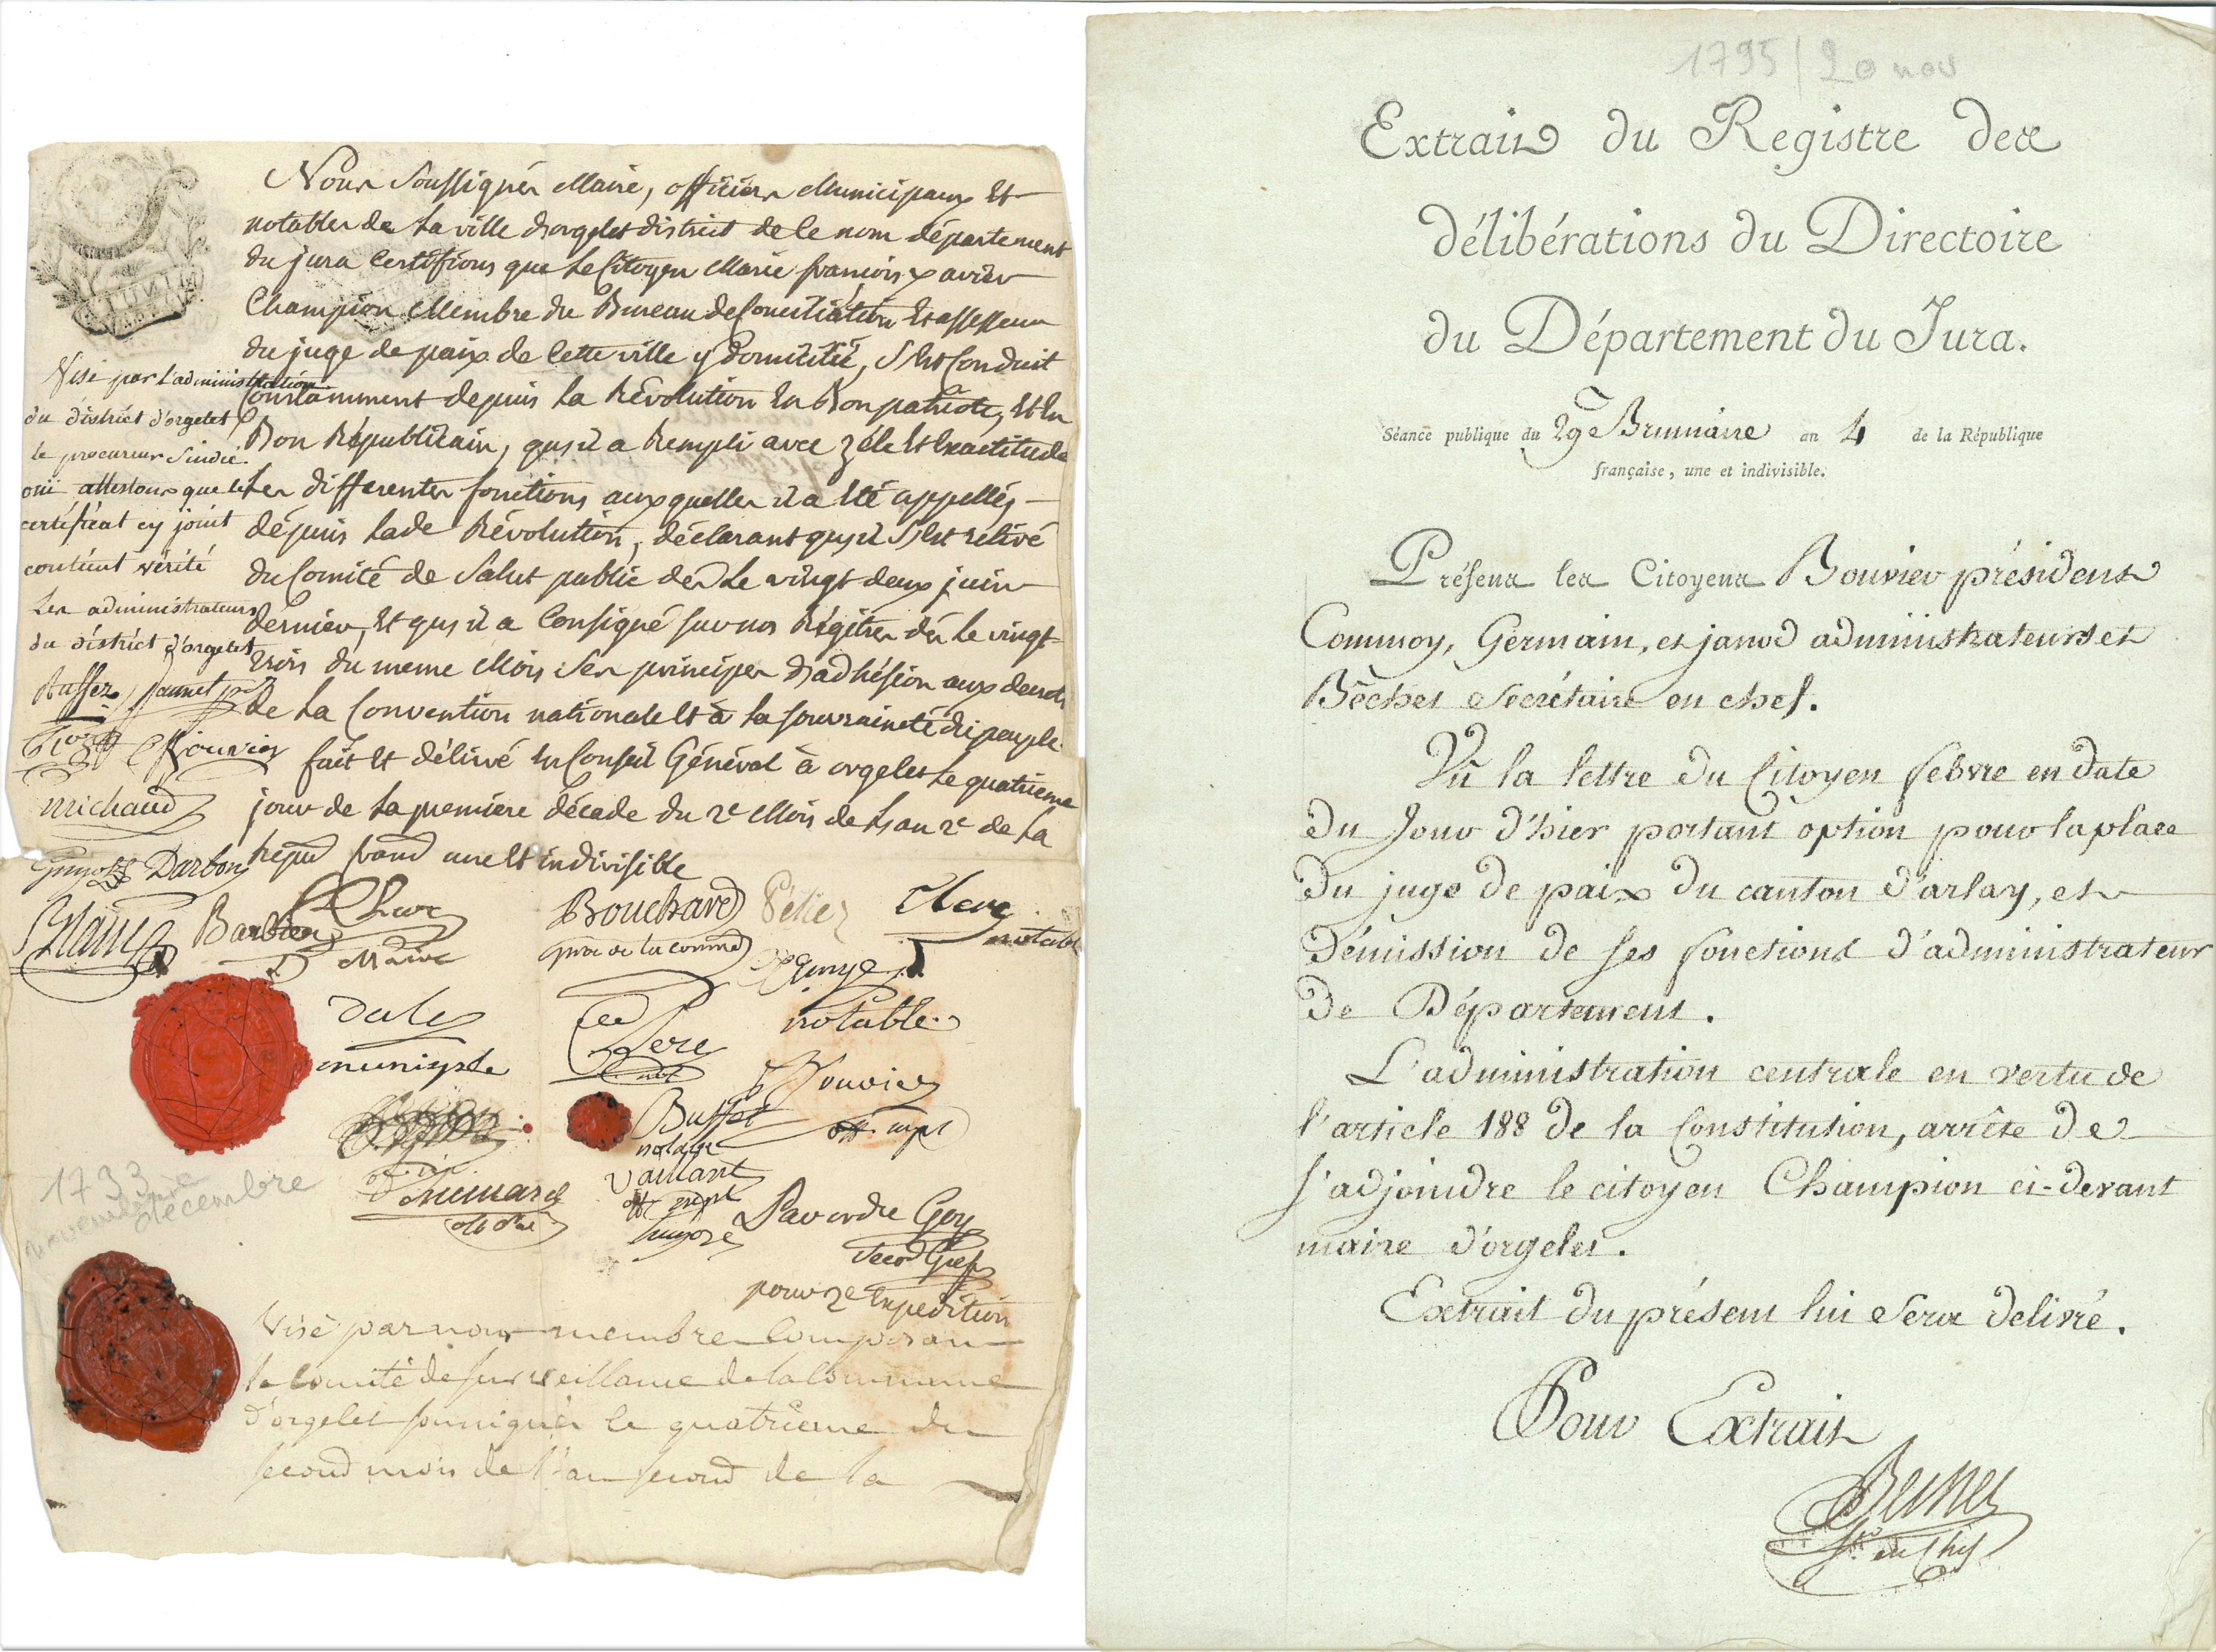 Nous soussignés Maire, officiers Municipaux Et
notables de la ville d'orgelet district de ce nom département
du jura Certifions que le Citoyen Marie francois xavier
Champion Membre du Bureau de Conciliation Et assesseur
du juge de paix de Cette ville y domicilié, s'est Conduit
Constamment depuis la Révolution En Bon patriote, Et En
Bon Républicain, qu'il a Rempli avec zéle Et Exactitude
les differentes fonctions auxquelles il a Eté appellés
dépuis lade Révolution, déclarant qu'il s'est retiré
du Comité de Salut public dès le vingt deux juin
dernier, Et qu'il a Consigné sur nos Régitres dès le vingt-
trois du meme Mois ses principes d'adhésion aux decrets
de la Convention nationale Et à la souveraineté du peuple.
fait Et délivré En Conseil Général à orgelet le quatrieme
jour de la premiere décade du 2e Mois de L'an 2e de la
Repud francd une Et indivisible
Visé par l'administration
du district d'orgelet
le procureur sindic
oui attestons que le
certificat cy joint
contient vérité
Les administrateurs
du district d'orgelet
Buffez Jaunet
Bouvier
michaud
Guyot Darbon
Barbier Clerc
Maire
Bouchard
pror de la commd
Clerc
notabl
notable
municple
Clerc
not
Bouvier
off. mpl
Buffet
notable
vaillant
off mpl
Lavordre Goy
Secrd Gref
pour 2e Expedition
1793
novembre
décembre
Visé par nous membres Composans
le Comité de surveillance de la Commune
d'orgelet soussignés le quatrieme du
second mois de l'an second de la
1795 / 20 nov
Extrait du Registre des
délibérations du Directoire
du Département du Jura.
Séance publique du 29e Brumaire an 4 de la République
française, une et indivisible.
Présens les Citoyens Bouvier président
Commoy, Germain, et janod administrateurs et
Bêchet Secrétaire en chef.
Vû la lettre du Citoyen febvre en date
du Jour d'hier portant option pour la place
du juge de paix du canton d'arlay, et
démission de ses fonctions d'administrateur
de Département.
L'administration centrale en vertu de
l'article 188 de la Constitution, arrête de
s'adjoindre le citoyen Champion ci-devant
maire d'orgelet.
Extrait du présent lui sera delivré.
Pour Extrait
Bechet
Sre en Chef